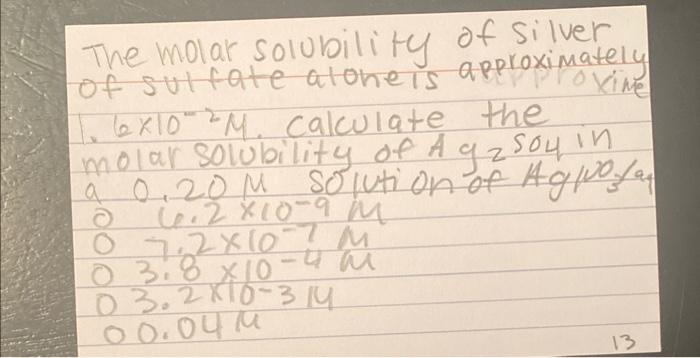 The molar solubility of silver
of sulfate alone is approximately
1.6x10-²M. calculate the
molar solubility of Ag₂SO4 in
a 0.20 M solution of AgNO₃/aq
O 6.2 x10-9 M
O 7.2x10-7 M
O 3.8 x10-4 M
O 3.2x10-3 M
O 0.04 M
13